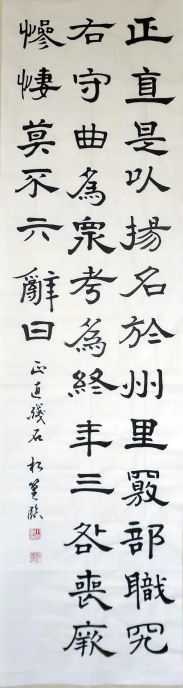 正直是以揚名於州里㝡部職究
右守曲為眾考為終年三咎喪厥
慘悽莫不六辭曰
正直殘石